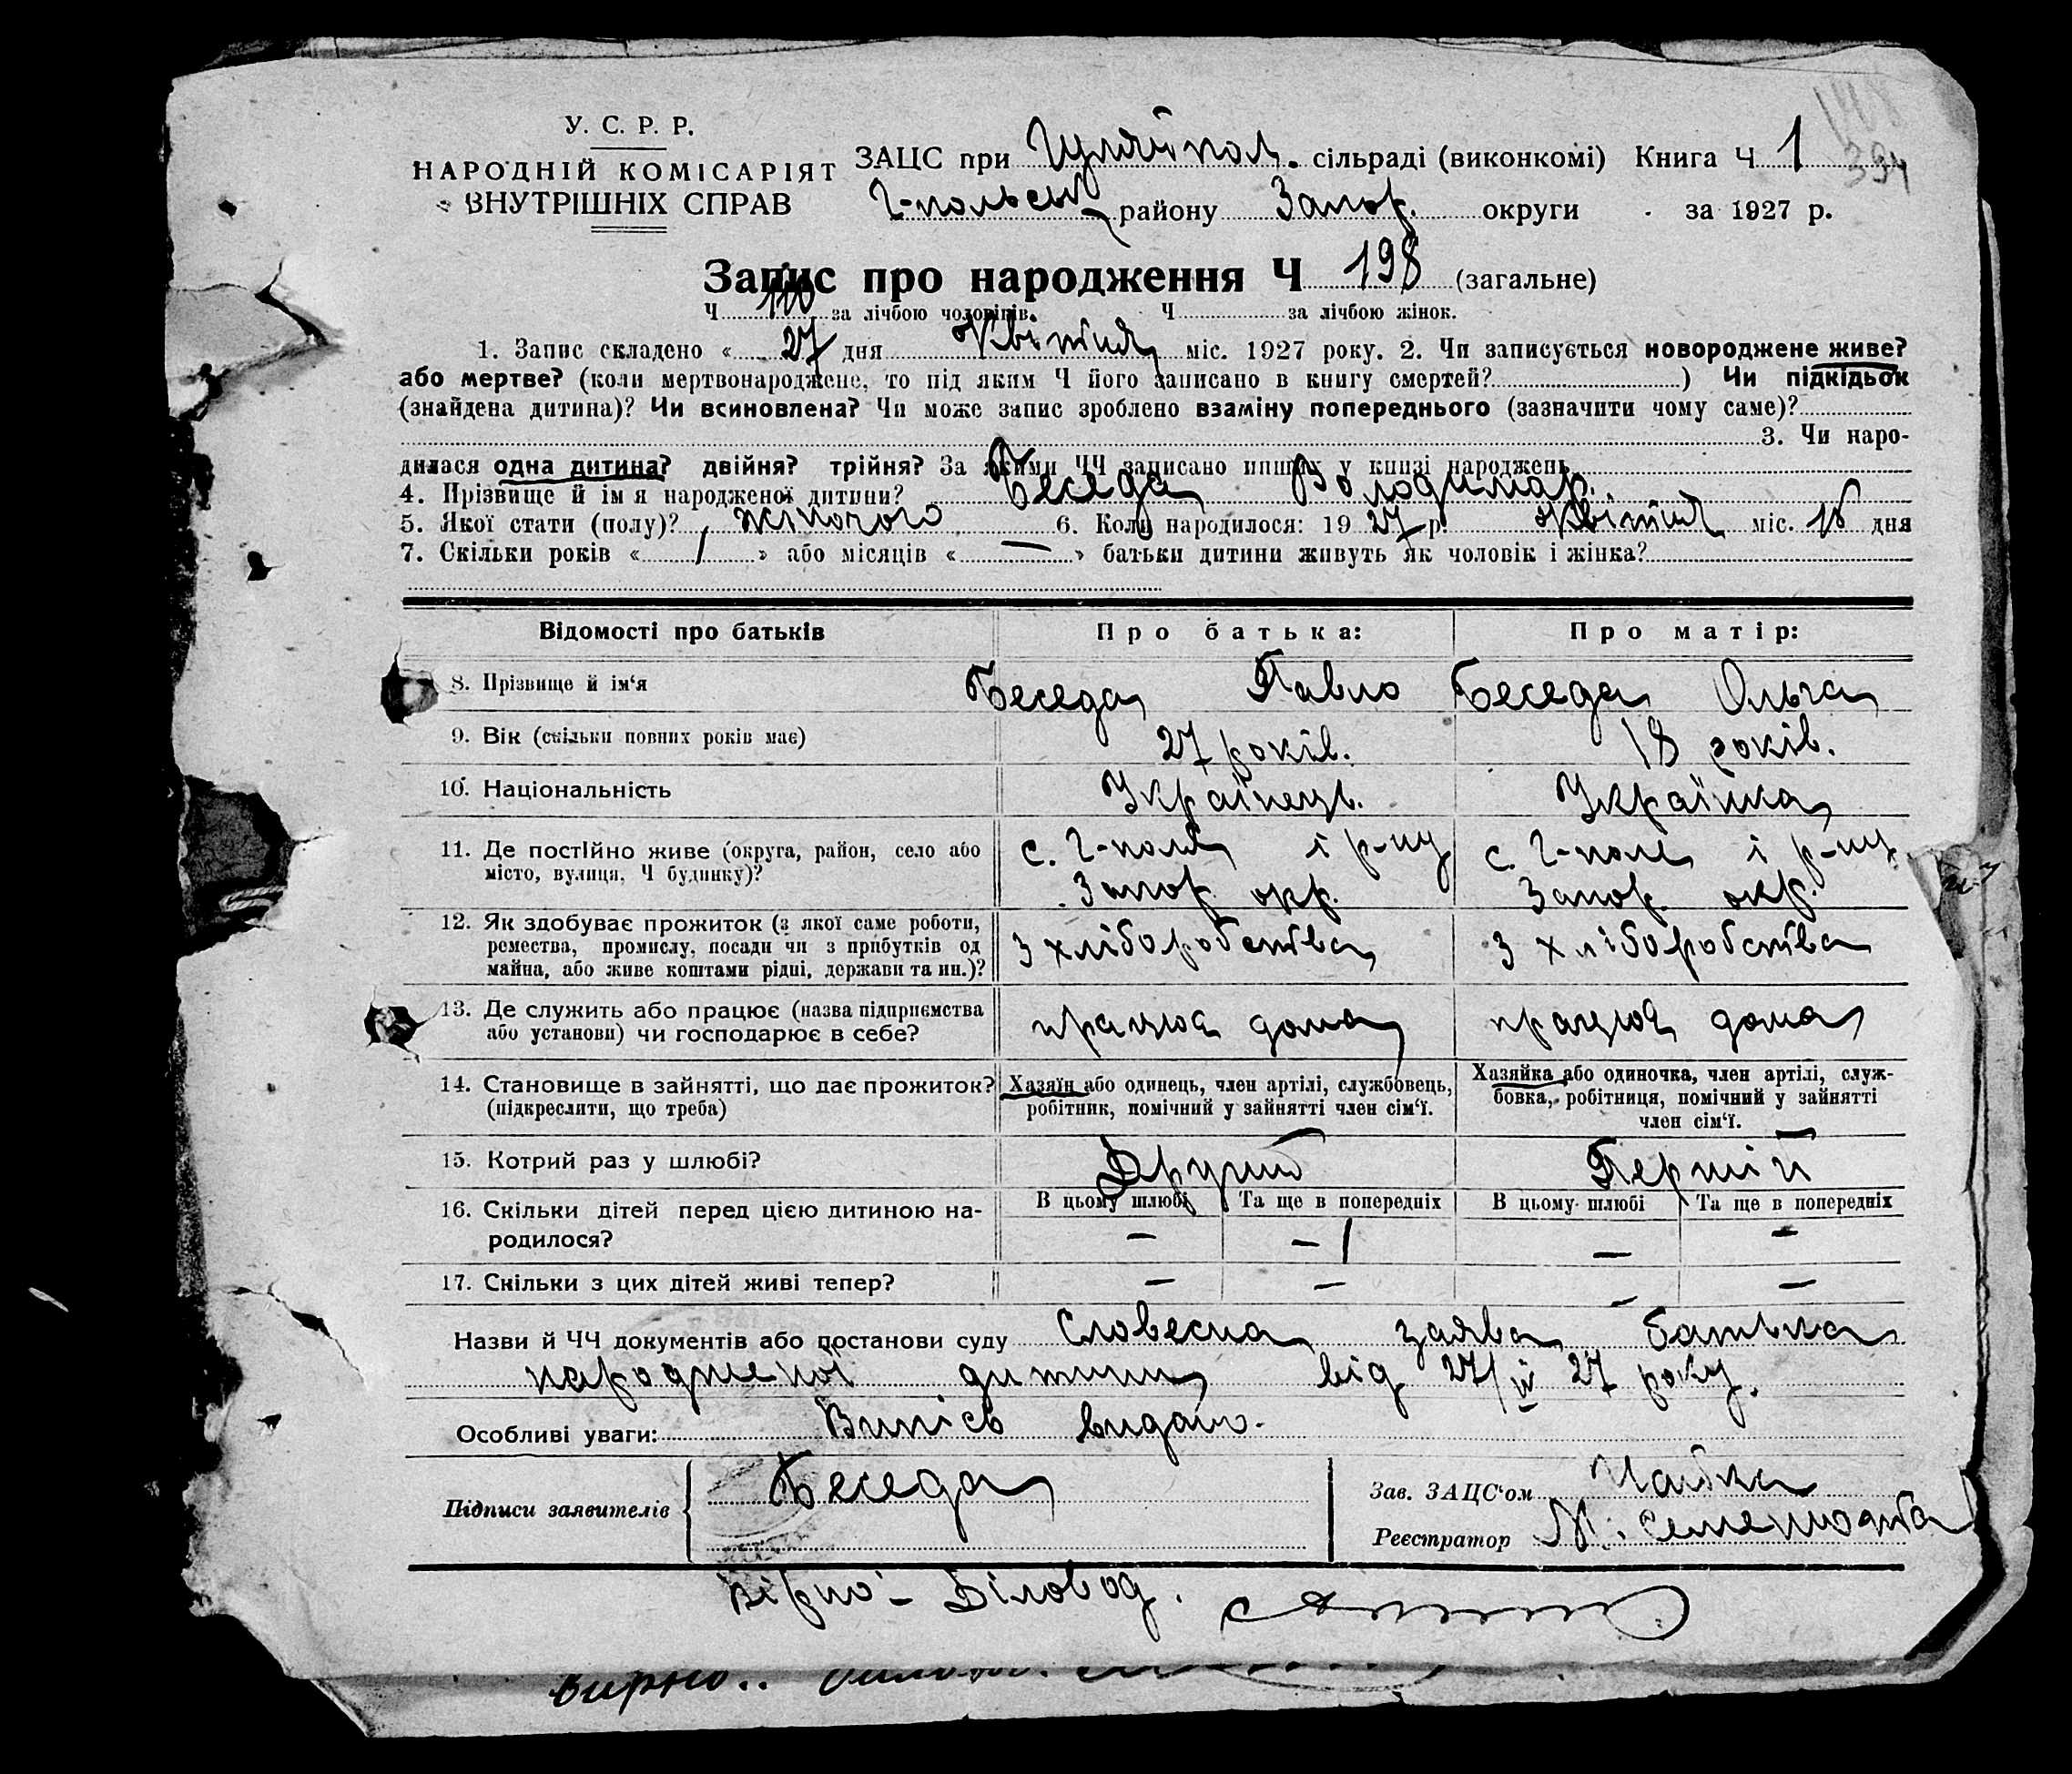 У. С. Р. Р.
НАРОДНІЙ КОМІСАРІЯТ
ВНУТРІШНІХ СПРАВ
ЗАЦС при Гуляйпол. сільраді (виконкомі) Книга Ч 1
394
Г-польськ району Запор. округи за 1927 р.
Запис про народження Ч 198 (загальне)
Ч 110 за лічбою чоловіків. Ч за лічбою жінок.
1. Запис складено « 27 дня Квітня міс. 1927 року. 2. Чи записується новороджене живе?
або мертве? (коли мертвонароджене, то під яким Ч його записано в книгу смертей? ) Чи підкідьок
(знайдена дитина)? Чи всиновлена? Чи може запис зроблено взаміну попереднього (зазначити чому саме)?
3. Чи наро-
дилася одна дитина? двійня? трійня? За якими ЧЧ записано інших у книзі народжень
4. Прізвище й ім я народженої дитини? Беседа Володимар.
5. Якої стати (полу)? жіночого 6. Коли народилося: 19 27 р. Квітня міс. 18 дня
7. Скільки років « 1 » або місяців « — » батьки дитини живуть як чоловік і жінка?
Відомості про батьків Про батька: Про матір:
8. Прізвище й ім‘я Беседа Павло Беседа Ольга
9. Вік (скільки повних років має) 27 років. 18 років.
10. Національність Українець. Українка
11. Де постійно живе (округа, район, село або с. Г-поля і р-ну с. Г-поле і р-ну
місто, вулиця, Ч будинку)? Запор окр. Запор. окр.
12. Як здобуває прожиток (з якої саме роботи,
ремества, промислу, посади чи з прибутків од з хліборобства з хліборобства
майна, або живе коштами рідні, держави та ин.)?
13. Де служить або працює (назва підприємства працює дома працює дома
або установи) чи господарює в себе?
14. Становище в зайнятті, що дає прожиток? Хазяїн або одинець, член артілі, службовець, Хазяйка або одиночка, член артілі, служ-
(підкреслити, що треба) робітник, помічний у зайнятті член сім‘ї. бовка, робітниця, помічний у зайнятті
член сім‘ї.
15. Котрий раз у шлюбі? Другий Перший
16. Скільки дітей перед цією дитиною на- В цьому шлюбі Та ще в попередніх В цьому шлюбі Та ще в попередніх
родилося? — — 1 — —
17. Скільки з цих дітей живі тепер? — — — —
Назви й ЧЧ документів або постанови суду Словесна заява батька
народженої дитини від 27/IV 27 року.
Особливі уваги: Випісь видано.
Підписи заявителів Беседа
Зав. ЗАЦС‘ом Чайка
Реєстратор
Вірно - Діловод.
вирно..